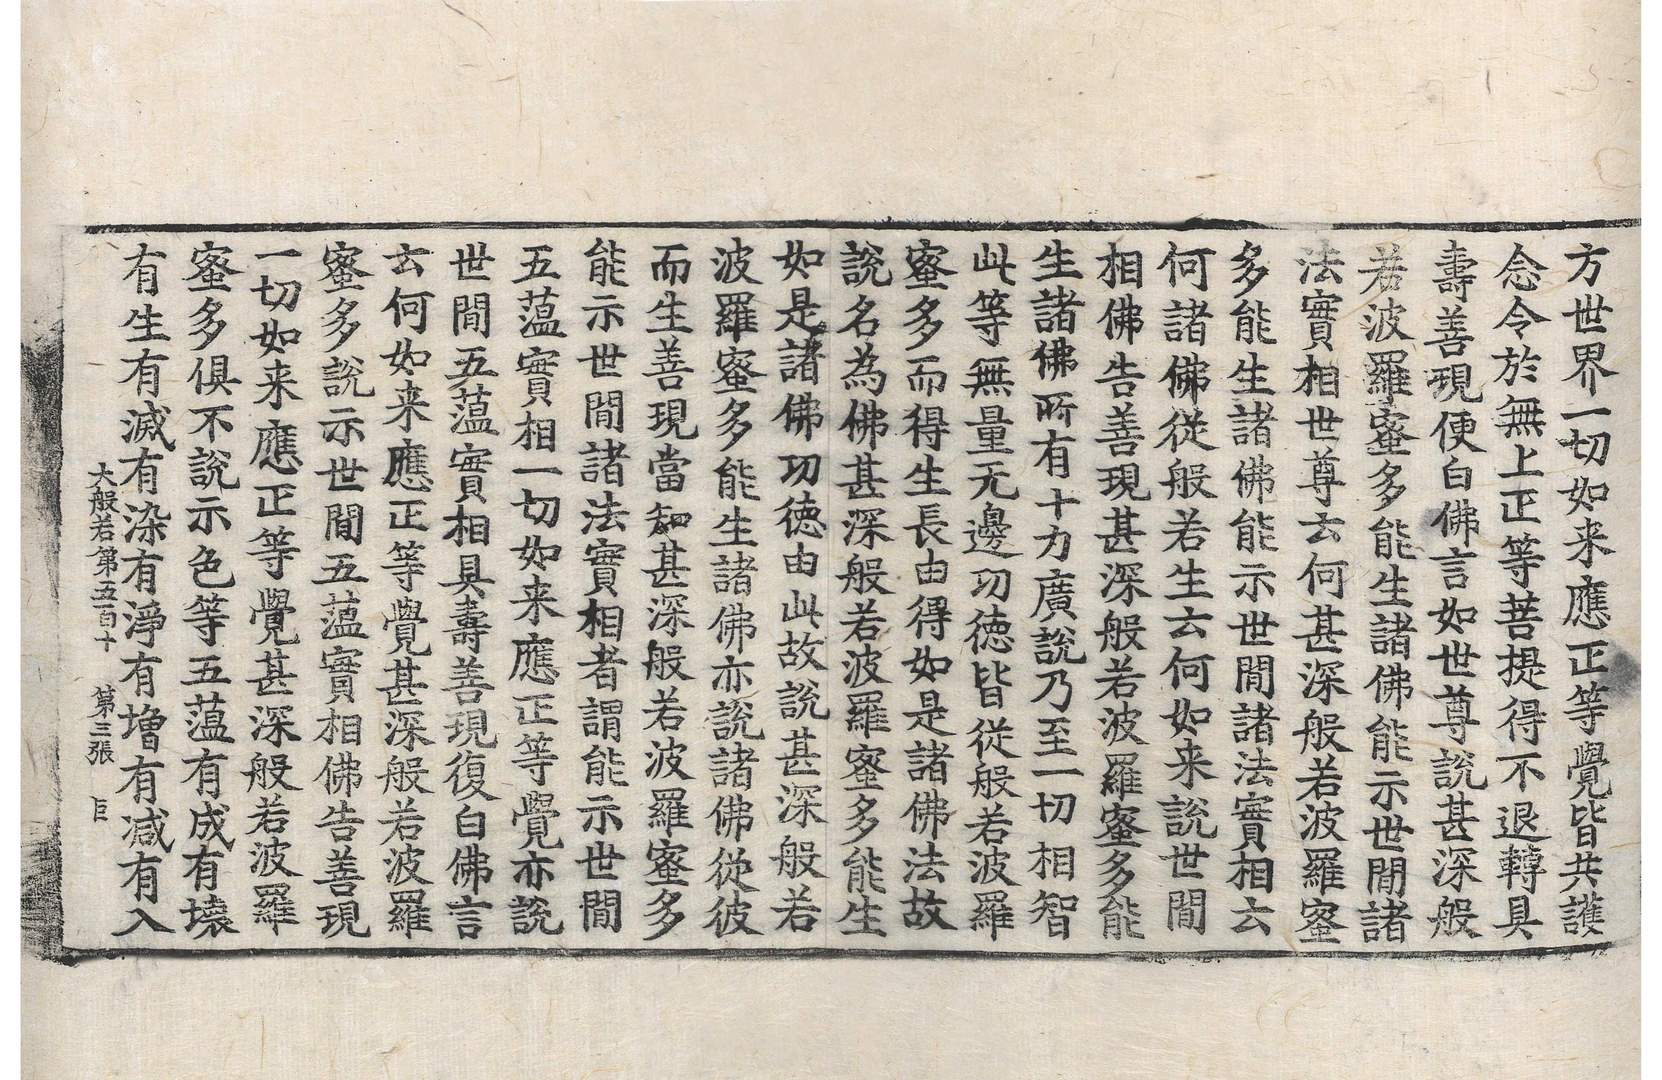 方世界一切如来應正等覺皆共護
念令於無上正等菩提得不退轉具
壽善現便白佛言如世尊說甚深般
若波羅蜜多能生諸佛能示世閒諸
法實相世尊云何甚深般若波羅蜜
多能生諸佛能示世閒諸法實相云
何諸佛從般若生云何如来說世閒
相佛告善現甚深般若波羅蜜多能
生諸佛所有十力廣說乃至一切相智
此等無量无邊功德皆從般若波羅
蜜多而得生長由得如是諸佛法故
說名為佛甚深般若波羅蜜多能生
如是諸佛功德由此故說甚深般若
波羅蜜多能生諸佛亦說諸佛從彼
而生善現當知甚深般若波羅蜜多
能示世閒諸法實相者謂能示世閒
五蕰實相一切如来應正等覺亦說
世閒五蕰實相具壽善現復白佛言
云何如来應正等覺甚深般若波羅
蜜多說示世閒五蕰實相佛告善現
一切如来應正等覺甚深般若波羅
蜜多俱不說示色等五蕰有成有壞
有生有滅有染有淨有增有减有入
大般若第五百十 第三張 巨